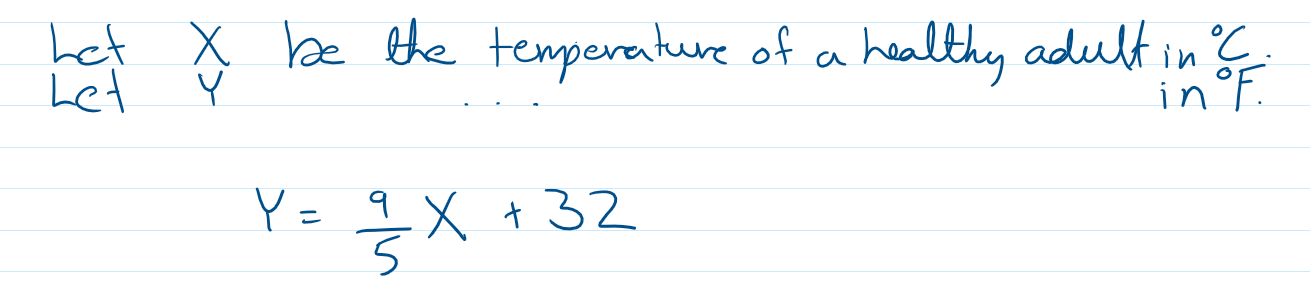 Let X be the temperature of a healthy adult in °C.
Let Y . . . . in °F.
Y = 9/5 X + 32